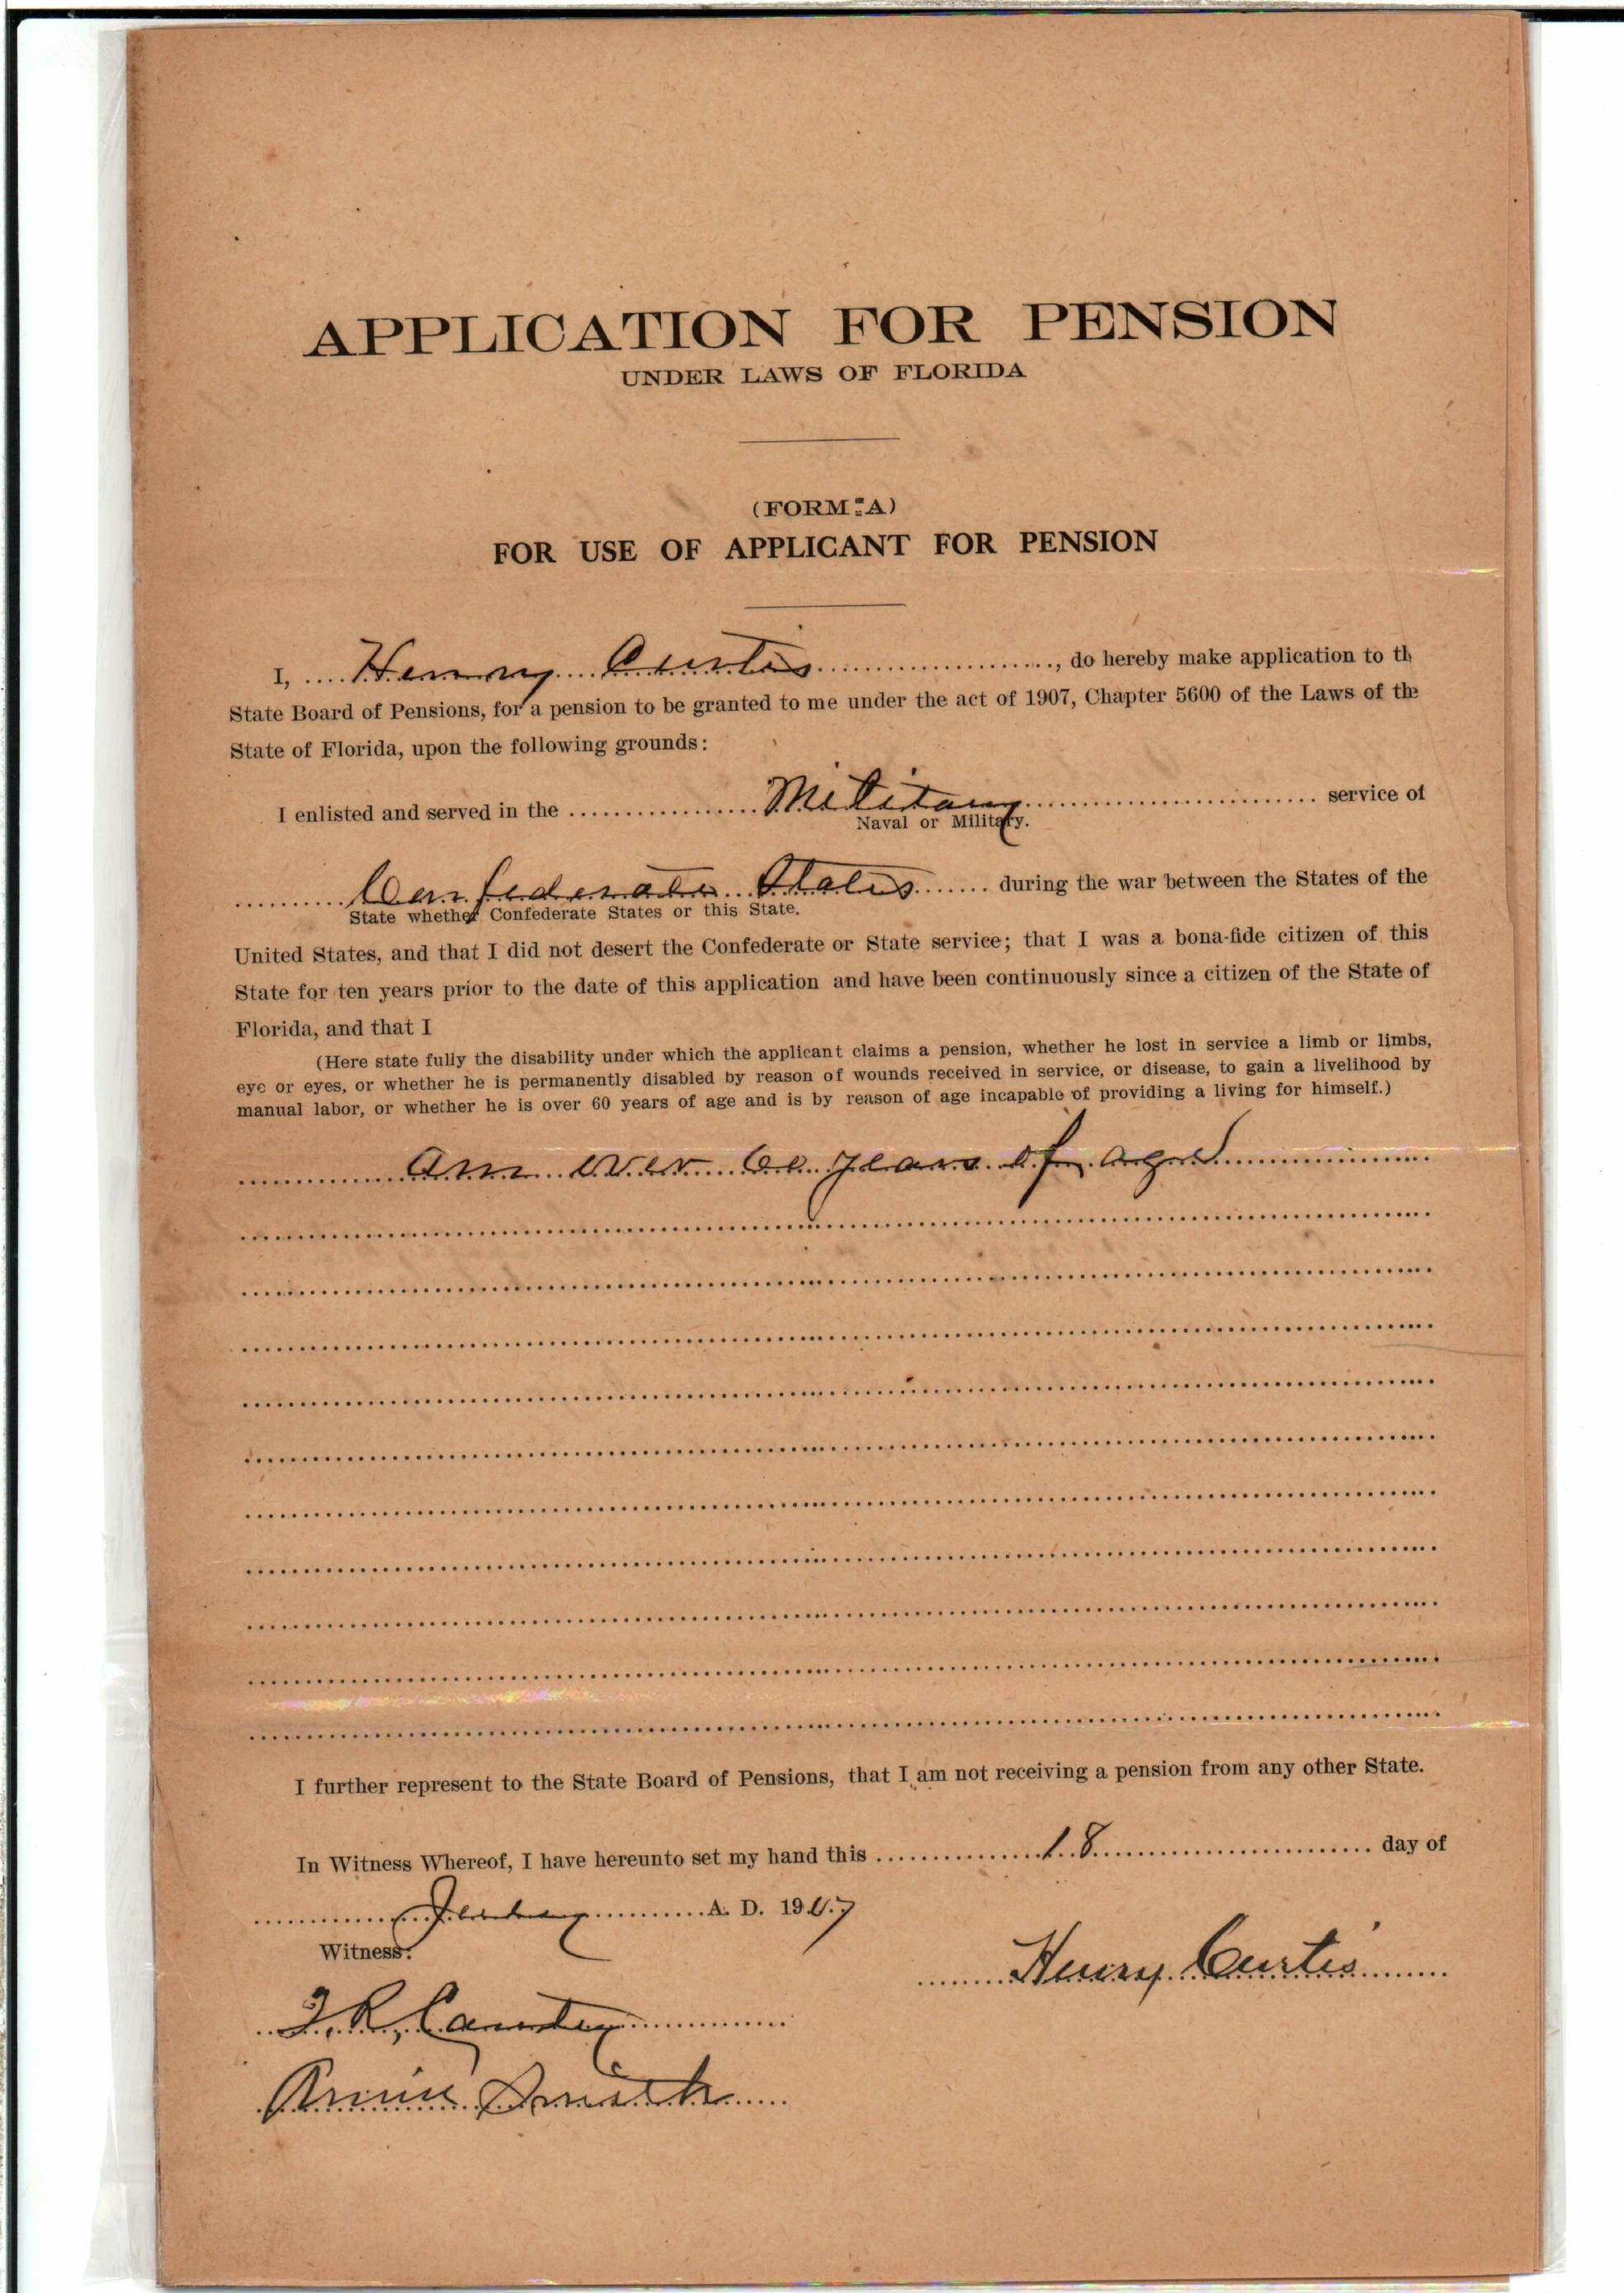 APPLICATION FOR PENSION
UNDER LAWS OF FLORIDA
(FORM A)
FOR USE OF APPLICANT FOR PENSION
I, Henry Curtis, do hereby make application to th
State Board of Pensions, for a pension to be granted to me under the act of 1907, Chapter 5600 of the Laws of the
State of Florida, upon the following grounds:
I enlisted and served in the Military service of
Naval or Military.
Confederate States during the war between the States of the
State whether Confederate States or this State.
United States, and that I did not desert the Confederate or State service; that I was a bona-fide citizen of this
State for ten years prior to the date of this application and have been continuously since a citizen of the State of
Florida, and that I
(Here state fully the disability under which the applicant claims a pension, whether he lost in service a limb or limbs,
eye or eyes, or whether he is permanently disabled by reason of wounds received in service, or disease, to gain a livelihood by
manual labor, or whether he is over 60 years of age and is by reason of age incapable of providing a living for himself.)
Am over 60 years of age
I further represent to the State Board of Pensions, that I am not receiving a pension from any other State.
In Witness Whereof, I have hereunto set my hand this 18 day of
A. D. 1907
Witness:
Henry Curtis
Smith